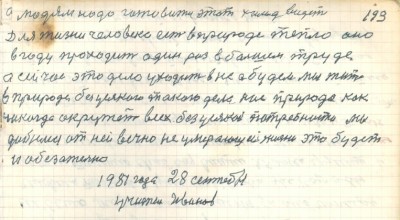 а людям надо готовить этот холод видет 193
Для жизни человека ест в природе тепло оно
в году проходит один раз в большем труде
а сейчас это дело уходит в не а будем мы жит
в природе без всякого такого дела нас природа как
никогда окружает всех без всякой потребности мы
добъемся от ней вечно не умерающей жизни это будет
и обезательно
1981 года 28 сентебр
учител Иванов